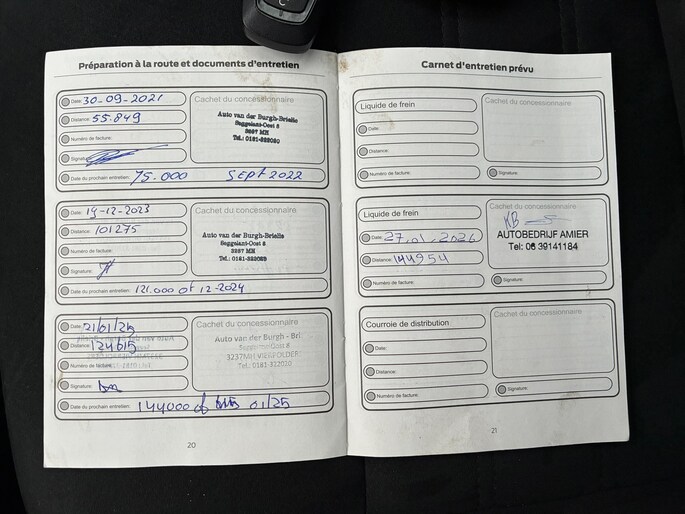 Préparation à la route et documents d'entretien
Date: 30-09-2021
Distance: 55.849
Numéro de facture:
Signature:
Date du prochain entretien: 75.000 SEPT 2022
Cachet du concessionnaire
Auto van der Burgh-Brielle
Seggelant-Oost 8
3237 MH
Tel.: 0181-322020
Date: 19-12-2023
Distance: 101275
Numéro de facture:
Signature:
Date du prochain entretien: 121.000 of 12-2024
Cachet du concessionnaire
Auto van der Burgh-Brielle
Seggelant-Oost 8
3237 MH
Tel.: 0181-322020
Date: 21/01/25
Distance: 124615
Numéro de facture:
Signature:
Date du prochain entretien: 144000 of 01/25
Cachet du concessionnaire
Auto van der Burgh - Bri
Seggelant-Oost 8
3237MH VIERPOLDER
Tel.: 0181-322020
20
Carnet d'entretien prévu
Liquide de frein
Date:
Distance:
Numéro de facture:
Cachet du concessionnaire
Signature:
Liquide de frein
Date: 27.01.2026
Distance: 144954
Numéro de facture:
Cachet du concessionnaire
KB
AUTOBEDRIJF AMIER
Tel: 06 39141184
Signature:
Courroie de distribution
Date:
Distance:
Numéro de facture:
Cachet du concessionnaire
Signature:
21